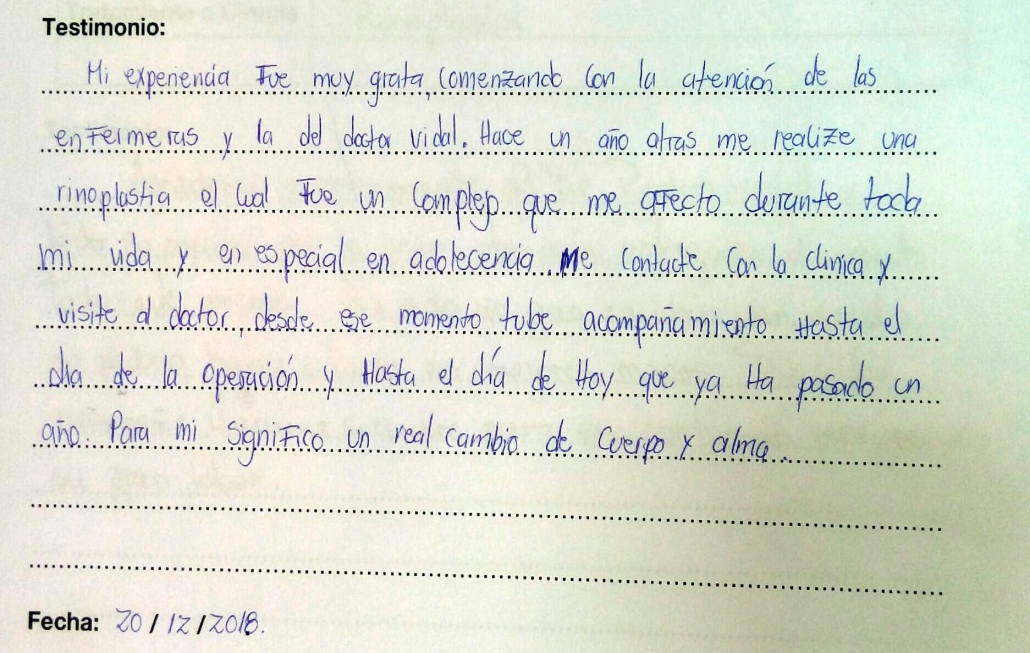 Testimonio:
Mi experiencia Fue muy grata, comenzando con la atención de las
enFermeras y la del doctor vidal. Hace un año atras me realize una
rinoplastia el cual Fue un complejo que me aFecto durante toda
mi vida y en especial en adolecencia. Me contacte con la clinica y
visite al doctor, desde ese momento tube acompañamiento Hasta el
dia de la operación y Hasta el día de Hoy que ya Ha pasado un
año. Para mi signiFico un real cambio de cuerpo y alma.
Fecha: 20 / 12 / 2018.